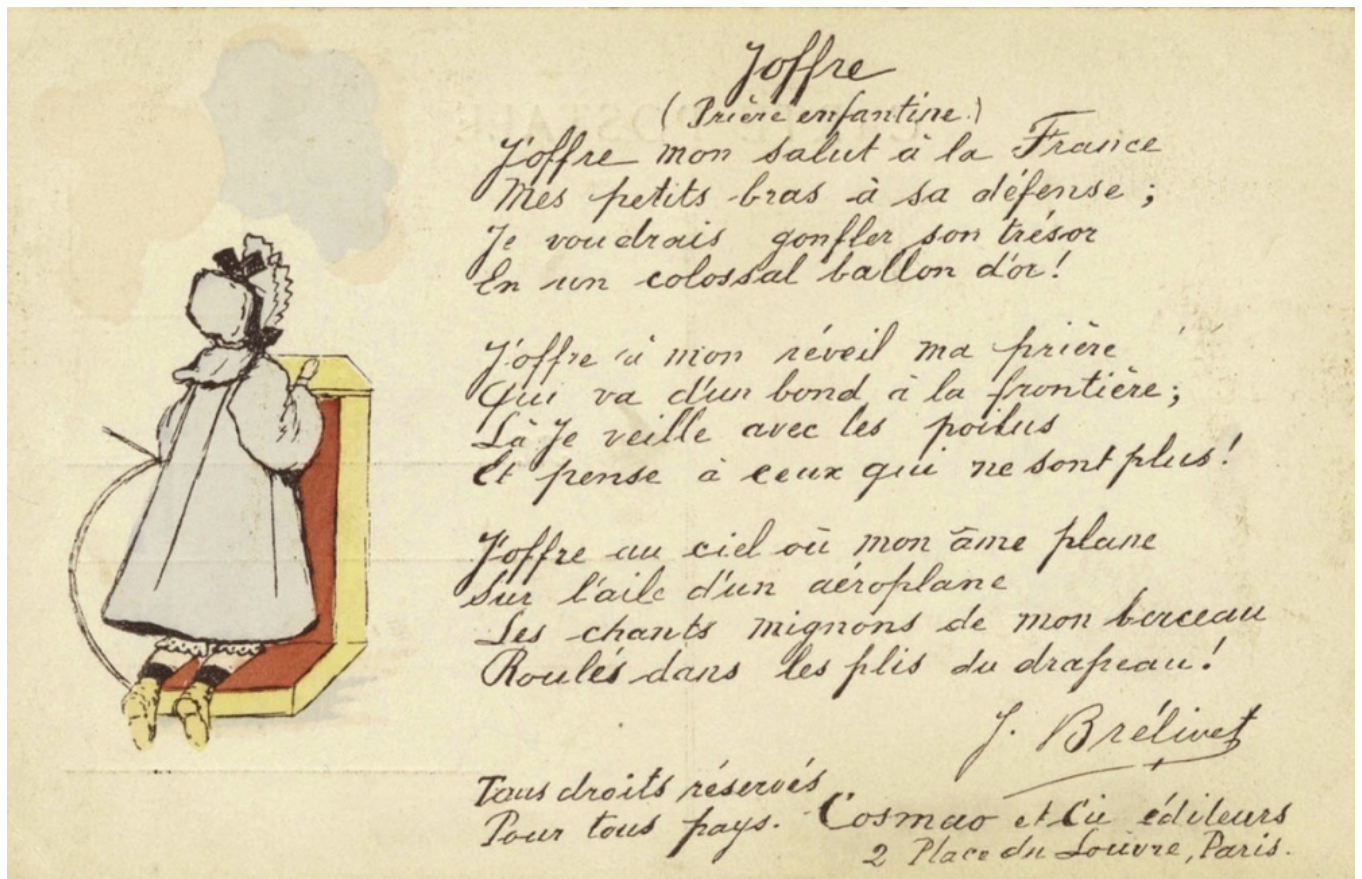 Joffre
(Prière enfantine.)
J'offre mon salut à la France
Mes petits bras à sa défense ;
Je voudrais gonfler son trésor
En un colossal ballon d'or !
J'offre à mon réveil ma prière
Qui va d'un bond à la frontière ;
Là je veille avec les poilus
Et pense à ceux qui ne sont plus !
J'offre au ciel où mon âme plane
Sur l'aile d'un aéroplane
Les chants mignons de mon berceau
Roulés dans les plis du drapeau !
J. Brélivet
Tous droits réservés
Pour tous pays. Cosmao et Cie éditeurs
2 Place du Louvre, Paris.